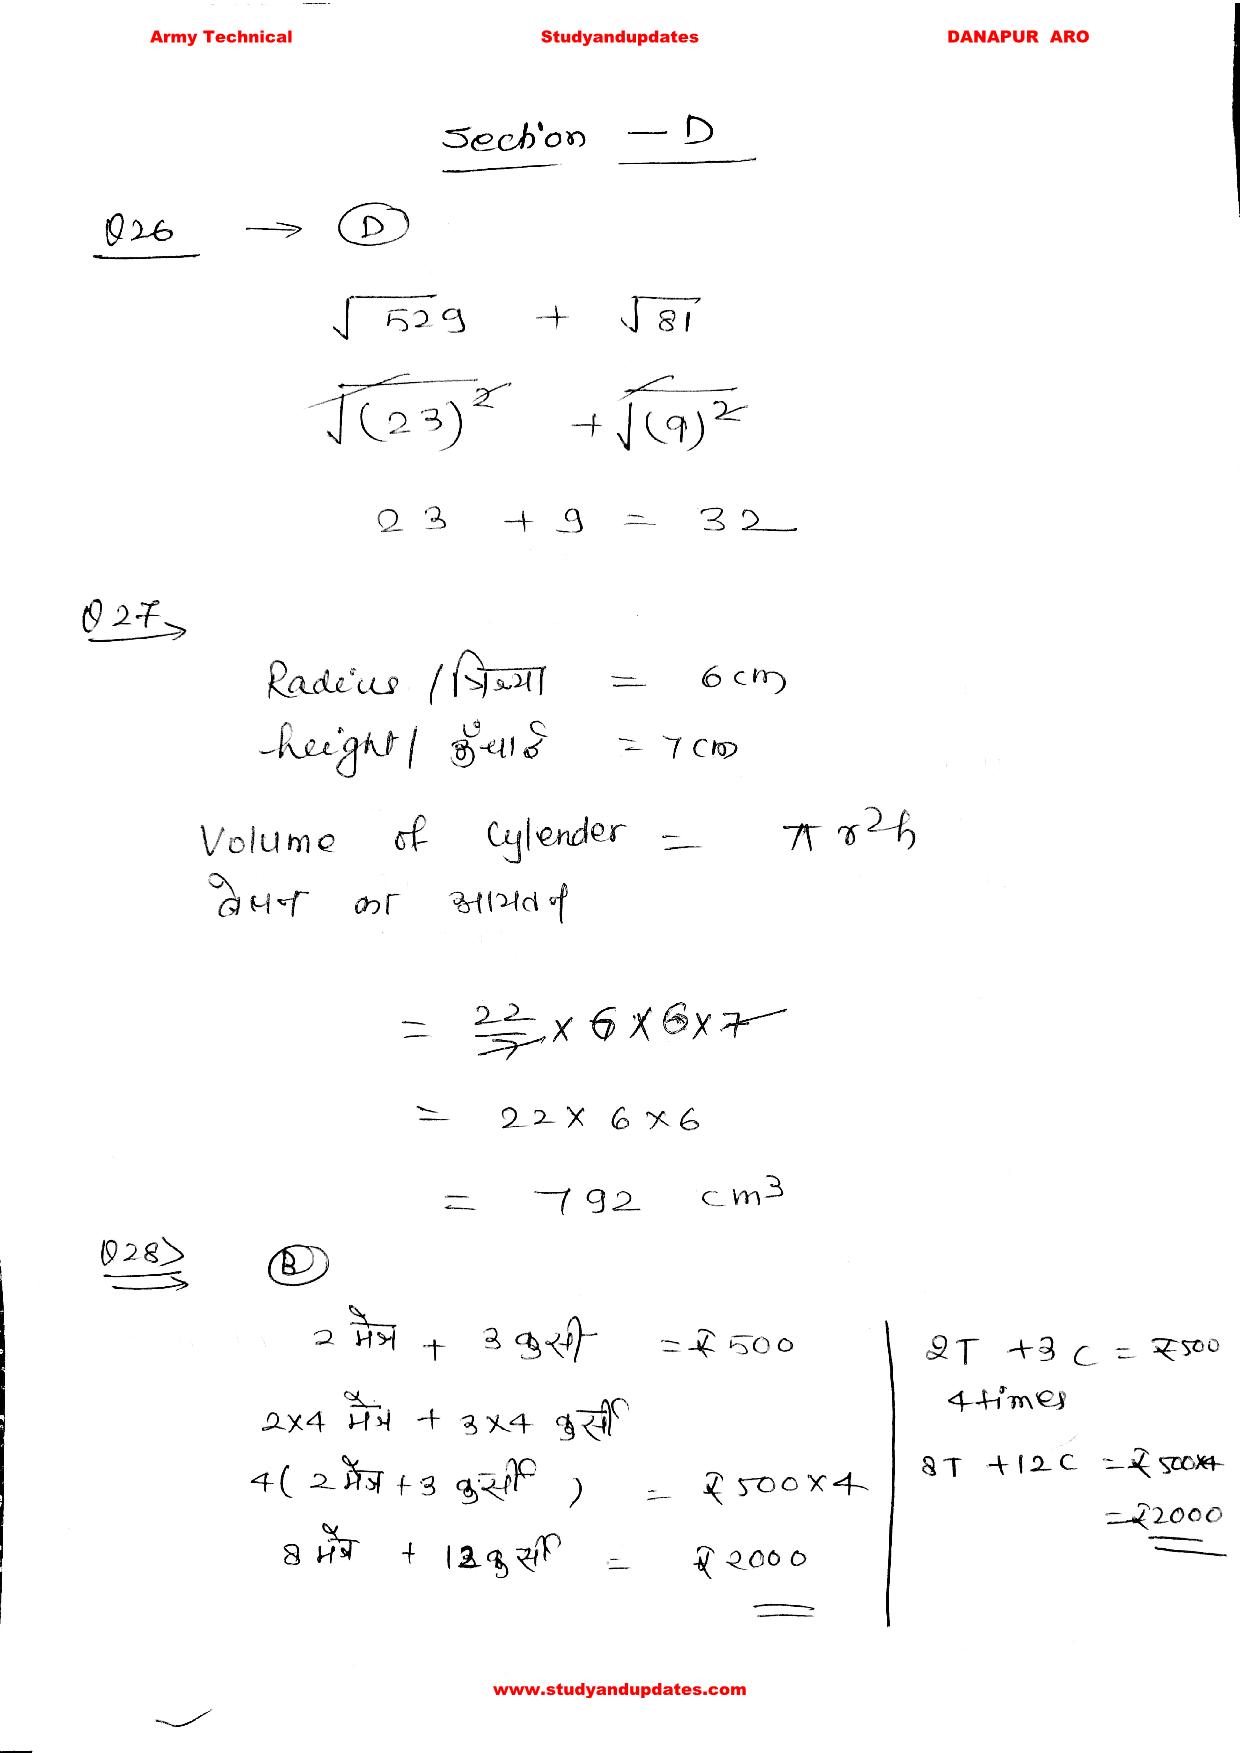 Army Technical Studyandupdates DANAPUR ARO
Section - D
Q26 → D
√529 + √81
√(23)² + √(9)²
23 + 9 = 32
Q27
Radius / त्रिज्या = 6 cm
height / ऊँचाई = 7 cm
Volume of Cylender = πr²h
बेलन का आयतन
= 22/7 × 6 × 6 × 7
= 22 × 6 × 6
= 792 cm³
Q28> B
2 मेज + 3 कुर्सी = ₹500
2×4 मेज + 3×4 कुर्सी
4(2 मेज + 3 कुर्सी) = ₹500×4
8 मेज + 12 कुर्सी = ₹2000
2T + 3C = ₹500
4 times
8T + 12C = ₹500×4
= ₹2000
www.studyandupdates.com